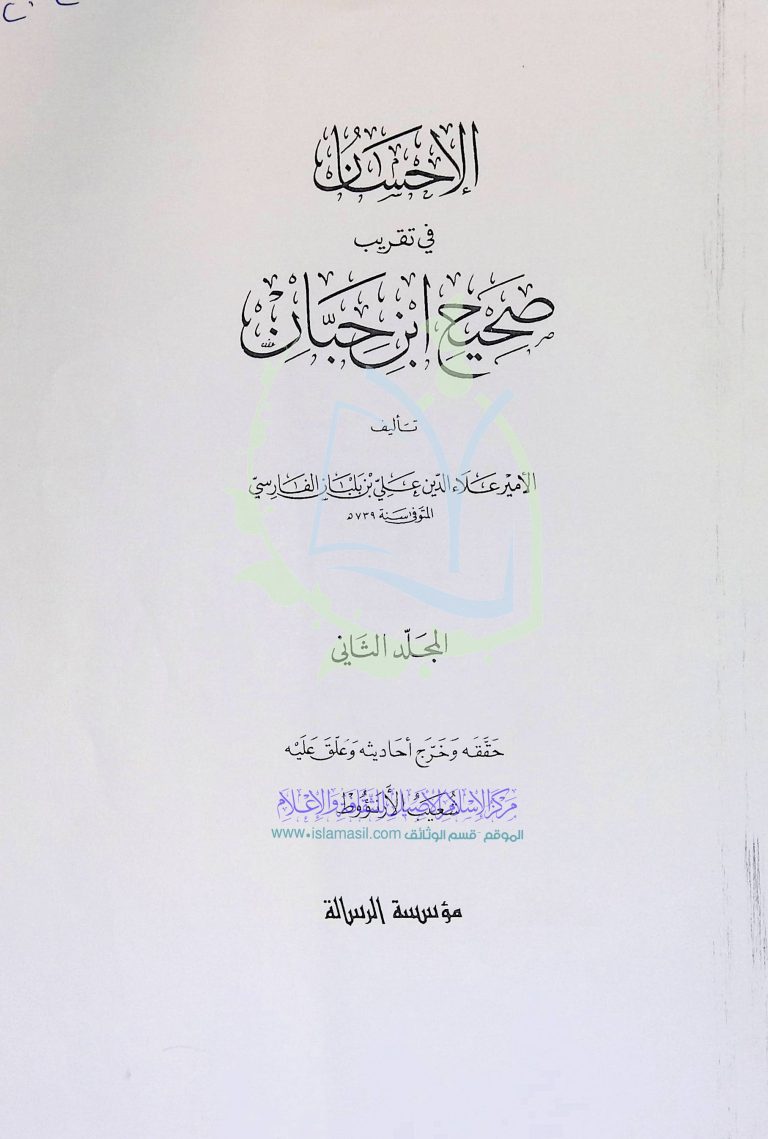 الإحسان
في تقريب
صحيح ابن حبان
تأليف
الأمير علاء الدين علي بن بلبان الفارسي
المتوفى سنة ٧٣٩ هـ
المجلد الثاني
حققه وخرج أحاديثه وعلق عليه
شعيب الأرنؤوط
مركز الإسلام الأصيل للثقافة والإعلام
الموقع - قسم الوثائق www.islamasil.com
مؤسسة الرسالة